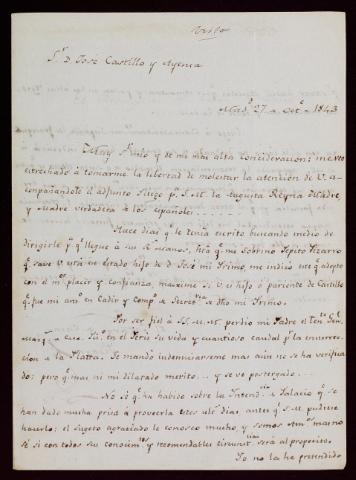 Sr. D. José Castillo y Ayensa
Madd. 27 de Octe. de 1843
Muy Sr. mio y de mi mas alta consideracion: me veo
estrechado á tomarme la libertad de molestar la atencion de V. a-
compañandole el adjunto Pliego pa. S. M. la augusta Reyna Madre,
y Madre verdadera de los Españoles
Hace dias qe. le tenía escrito buscando medio de
dirigirle pa. qe. llegue á sus Rs. manos, hta. qe. mi sobrino Pepito Pizarro
qe. save V. está en Estado hijo de D. José mi Primo, me indicó este qe. adopto
con el mor. placer y confianza, maxime si V. es hijo ó pariente de Castillo
qe. fue mi amo. en Cadiz y compo. de Secreta. de dho. mi Primo.
Por ser fiel á SS. MM. perdio mi Padre el Tente. Genl.
en el Perú su vida y cuantioso caudal pr. la insurrec-
cion de la Plata: Se mandó indemnizarseme mas aun no se ha verifica-
do: pero qe. mas ni mi dilatado merito... y se ve postergado...
No sé qe. ha habido sobre la Intenda. de Palacio qe. se
han dado mucha prisa á proveerla estos ults. dias, antes qe. S. M. pudiese
hacerlo: el sugeto agraciado le conosco mucho, y somos Ams. mas no
sé si con todos sus conocimtos. y recomendables circunstcias. será al proposito.
Yo no la he pretendido